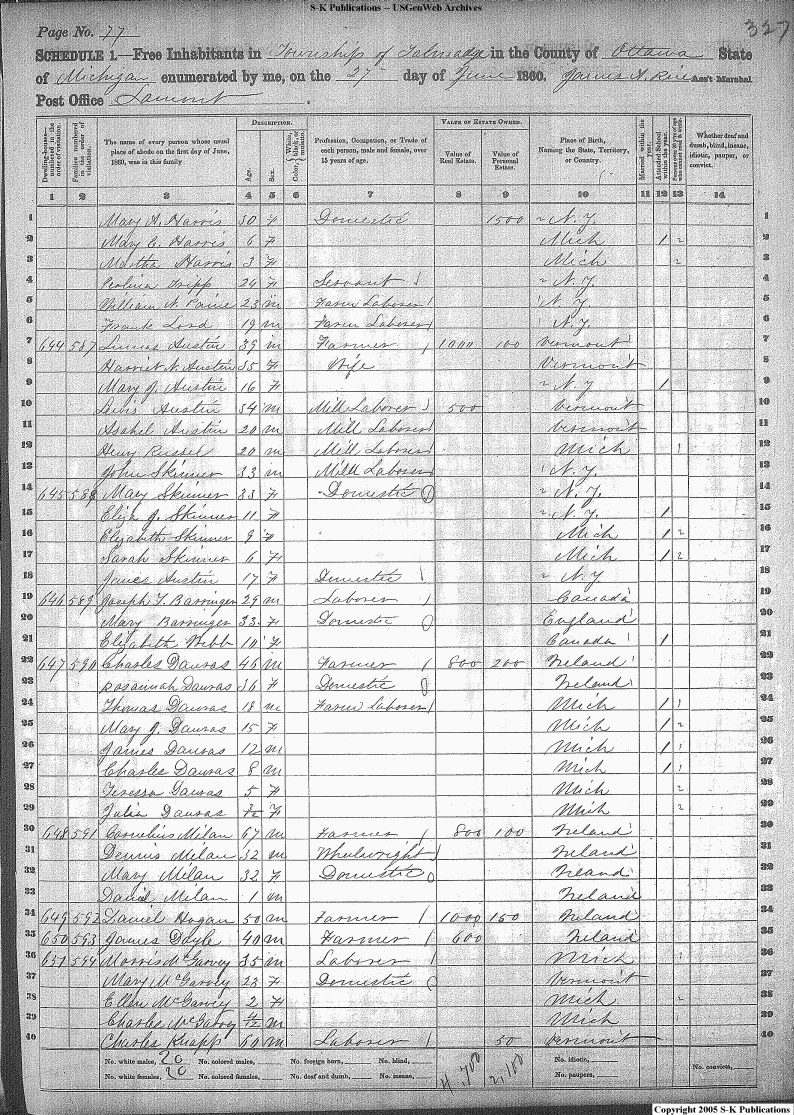 S-K Publications – USGenWeb Archives
Page No. 77 327
SCHEDULE 1.—Free Inhabitants in Township of Talmadge in the County of Ottawa State
of Michigan enumerated by me, on the 27 day of June 1860. James A. Rice Ass't Marshal
Post Office Lamont.
Dwelling-houses—numbered in the order of visitation. Families numbered in the order of visitation. The name of every person whose usual place of abode on the first day of June, 1860, was in this family Description. Age. Sex. Color, White, black, or mulatto. Profession, Occupation, or Trade of each person, male and female, over 15 years of age. Value of Estate Owned. Value of Real Estate. Value of Personal Estate. Place of Birth, Naming the State, Territory, or Country. Married within the year. Attended School within the year. Persons over 20 y'rs of age who cannot read & write. Whether deaf and dumb, blind, insane, idiotic, pauper, or convict.
1 2 3 4 5 6 7 8 9 10 11 12 13 14
1 Mary A. Harris 30 F Domestic 1500 N.Y. 1
2 Mary E. Harris 6 F Mich 1 2 2
3 Martha Harris 3 F Mich 2 3
4 Tripp 24 F Servant 1 N.Y. 4
5 William N. Paine 23 m Farm Laborer 1 N.Y. 5
6 Frank Lord 19 m Farm Laborer 1 N.Y. 6
7 644 587 Austin 39 m Farmer 1 1000 100 Vermont 7
8 Harriet N. Austin 35 F Wife Vermont 8
9 Mary J. Austin 16 F N.Y 1 9
10 Austin 34 m Mill Laborer 1 500 Vermont 10
11 Asahel Austin 20 m Mill Laborer 1 Vermont 11
12 Henry Russel 20 m Mill Laborer 1 Mich 1 12
13 John Skinner 33 m Mill Laborer 1 N.Y. 13
14 645 588 Mary Skinner 33 F Domestic 0 N.Y. 14
15 J. Skinner 11 F N.Y. 1 15
16 Elizabeth Skinner 9 F Mich 1 2 16
17 Sarah Skinner 6 F Mich 1 2 17
18 Austin 17 F Domestic 1 N.Y 18
19 646 589 Joseph T. Barringer 29 m Laborer 1 Canada 19
20 Mary Barringer 33 F Domestic 0 England 20
21 Elizabeth Webb 10 F Canada 1 21
22 647 590 Charles Dauras 46 m Farmer 1 800 200 Ireland 22
23 Rosannah Dauras 36 F Domestic 0 Ireland 23
24 Thomas Dauras 18 m Farm Laborer 1 Mich 1 1 24
25 Mary J. Dauras 15 F Mich 1 2 25
26 James Dauras 12 m Mich 1 1 26
27 Charles Dauras 8 m Mich 1 1 27
28 Teressa Dauras 5 F Mich 2 28
29 Julia Dauras F Mich 2 29
30 648 591 Cornelius Milan 67 m Farmer 1 800 100 Ireland 30
31 Dennis Milan 32 m Wheelwright 1 Ireland 31
32 Mary Milan 32 F Domestic 0 Ireland 32
33 David Milan 1 m Ireland 33
34 649 592 Daniel Hogan 50 m Farmer 1 1000 150 Ireland 34
35 650 593 James Doyle 40 m Farmer 1 600 Ireland 35
36 651 594 Morris McGarvey 35 m Laborer 1 Mich 1 36
37 Mary McGarvey 23 F Domestic 0 Vermont 37
38 Ellen McGarvey 2 F Mich 2 38
39 Charles McGarvey 4/12 m Mich 1 39
40 Charles Knapp 60 m Laborer 1 50 Vermont 40
No. white males, 20 No. colored males, No. foreign born, No. blind, 4,700 2,100 No. idiotic, No. convicts,
No. white females, 20 No. colored females, No. deaf and dumb, No. insane, No. paupers,
Copyright 2005 S-K Publications